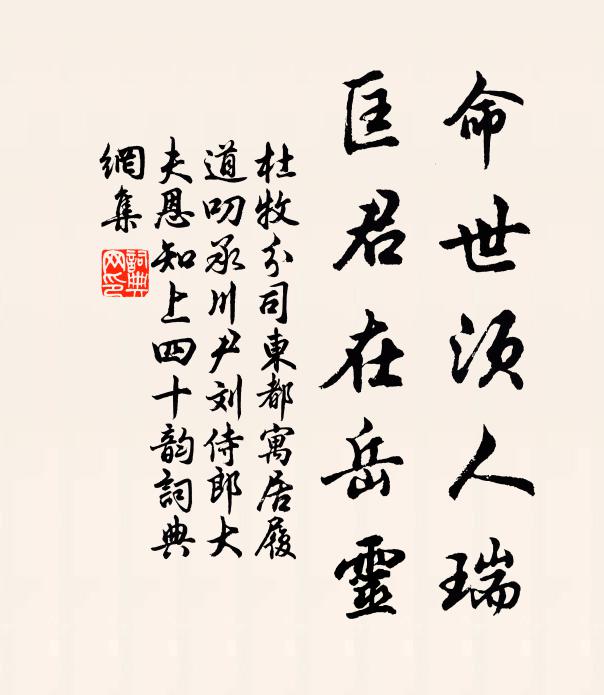 命世须人瑞
匡君在岳靈
杜牧分司東都寓居履
道叨承川尹刘侍郎大
夫恩知上四十韵詞典
網集
詞典
网印